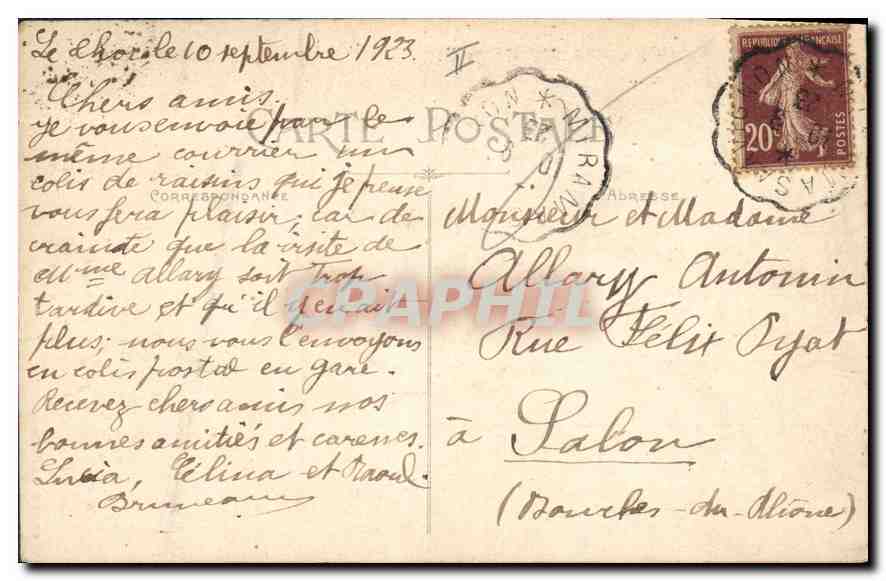 Le Thor le 10 septembre 1923
II
Chers amis
CARTE POSTALE
Je vous envoie par le
même courrier un
colis de raisins qui je pense
CORRESPONDANCE
ADRESSE
vous fera plaisir, car de
crainte que la visite de
Mme Allary soit trop
tardive et qu'il y en ait
plus; nous vous l'envoyons
en colis postal en gare.
Recevez chers amis nos
bonnes amitiés et caresses.
Lucia, Célina et Raoul
Bruneau
Monsieur et Madame
Allary Antonin
Rue Félix Pyat
à Salon
(Bouches-du-Rhône)
REPUBLIQUE FRANÇAISE
20c
POSTES
MIRAMAS
CPAPHIL